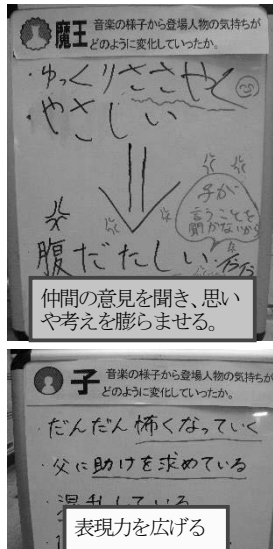 魔王 音楽の様子から登場人物の気持ちが
どのように変化していったか。
・ゆっくりささやく
・やさしい
子が
言うことを
聞かないから
イライラ
腹だたしい
仲間の意見を聞き、思い
や考えを膨らませる。
子 音楽の様子から登場人物の気持ちが
どのように変化していったか。
・だんだん怖くなっていく
・父に助けを求めている
・混乱している
表現力を広げる